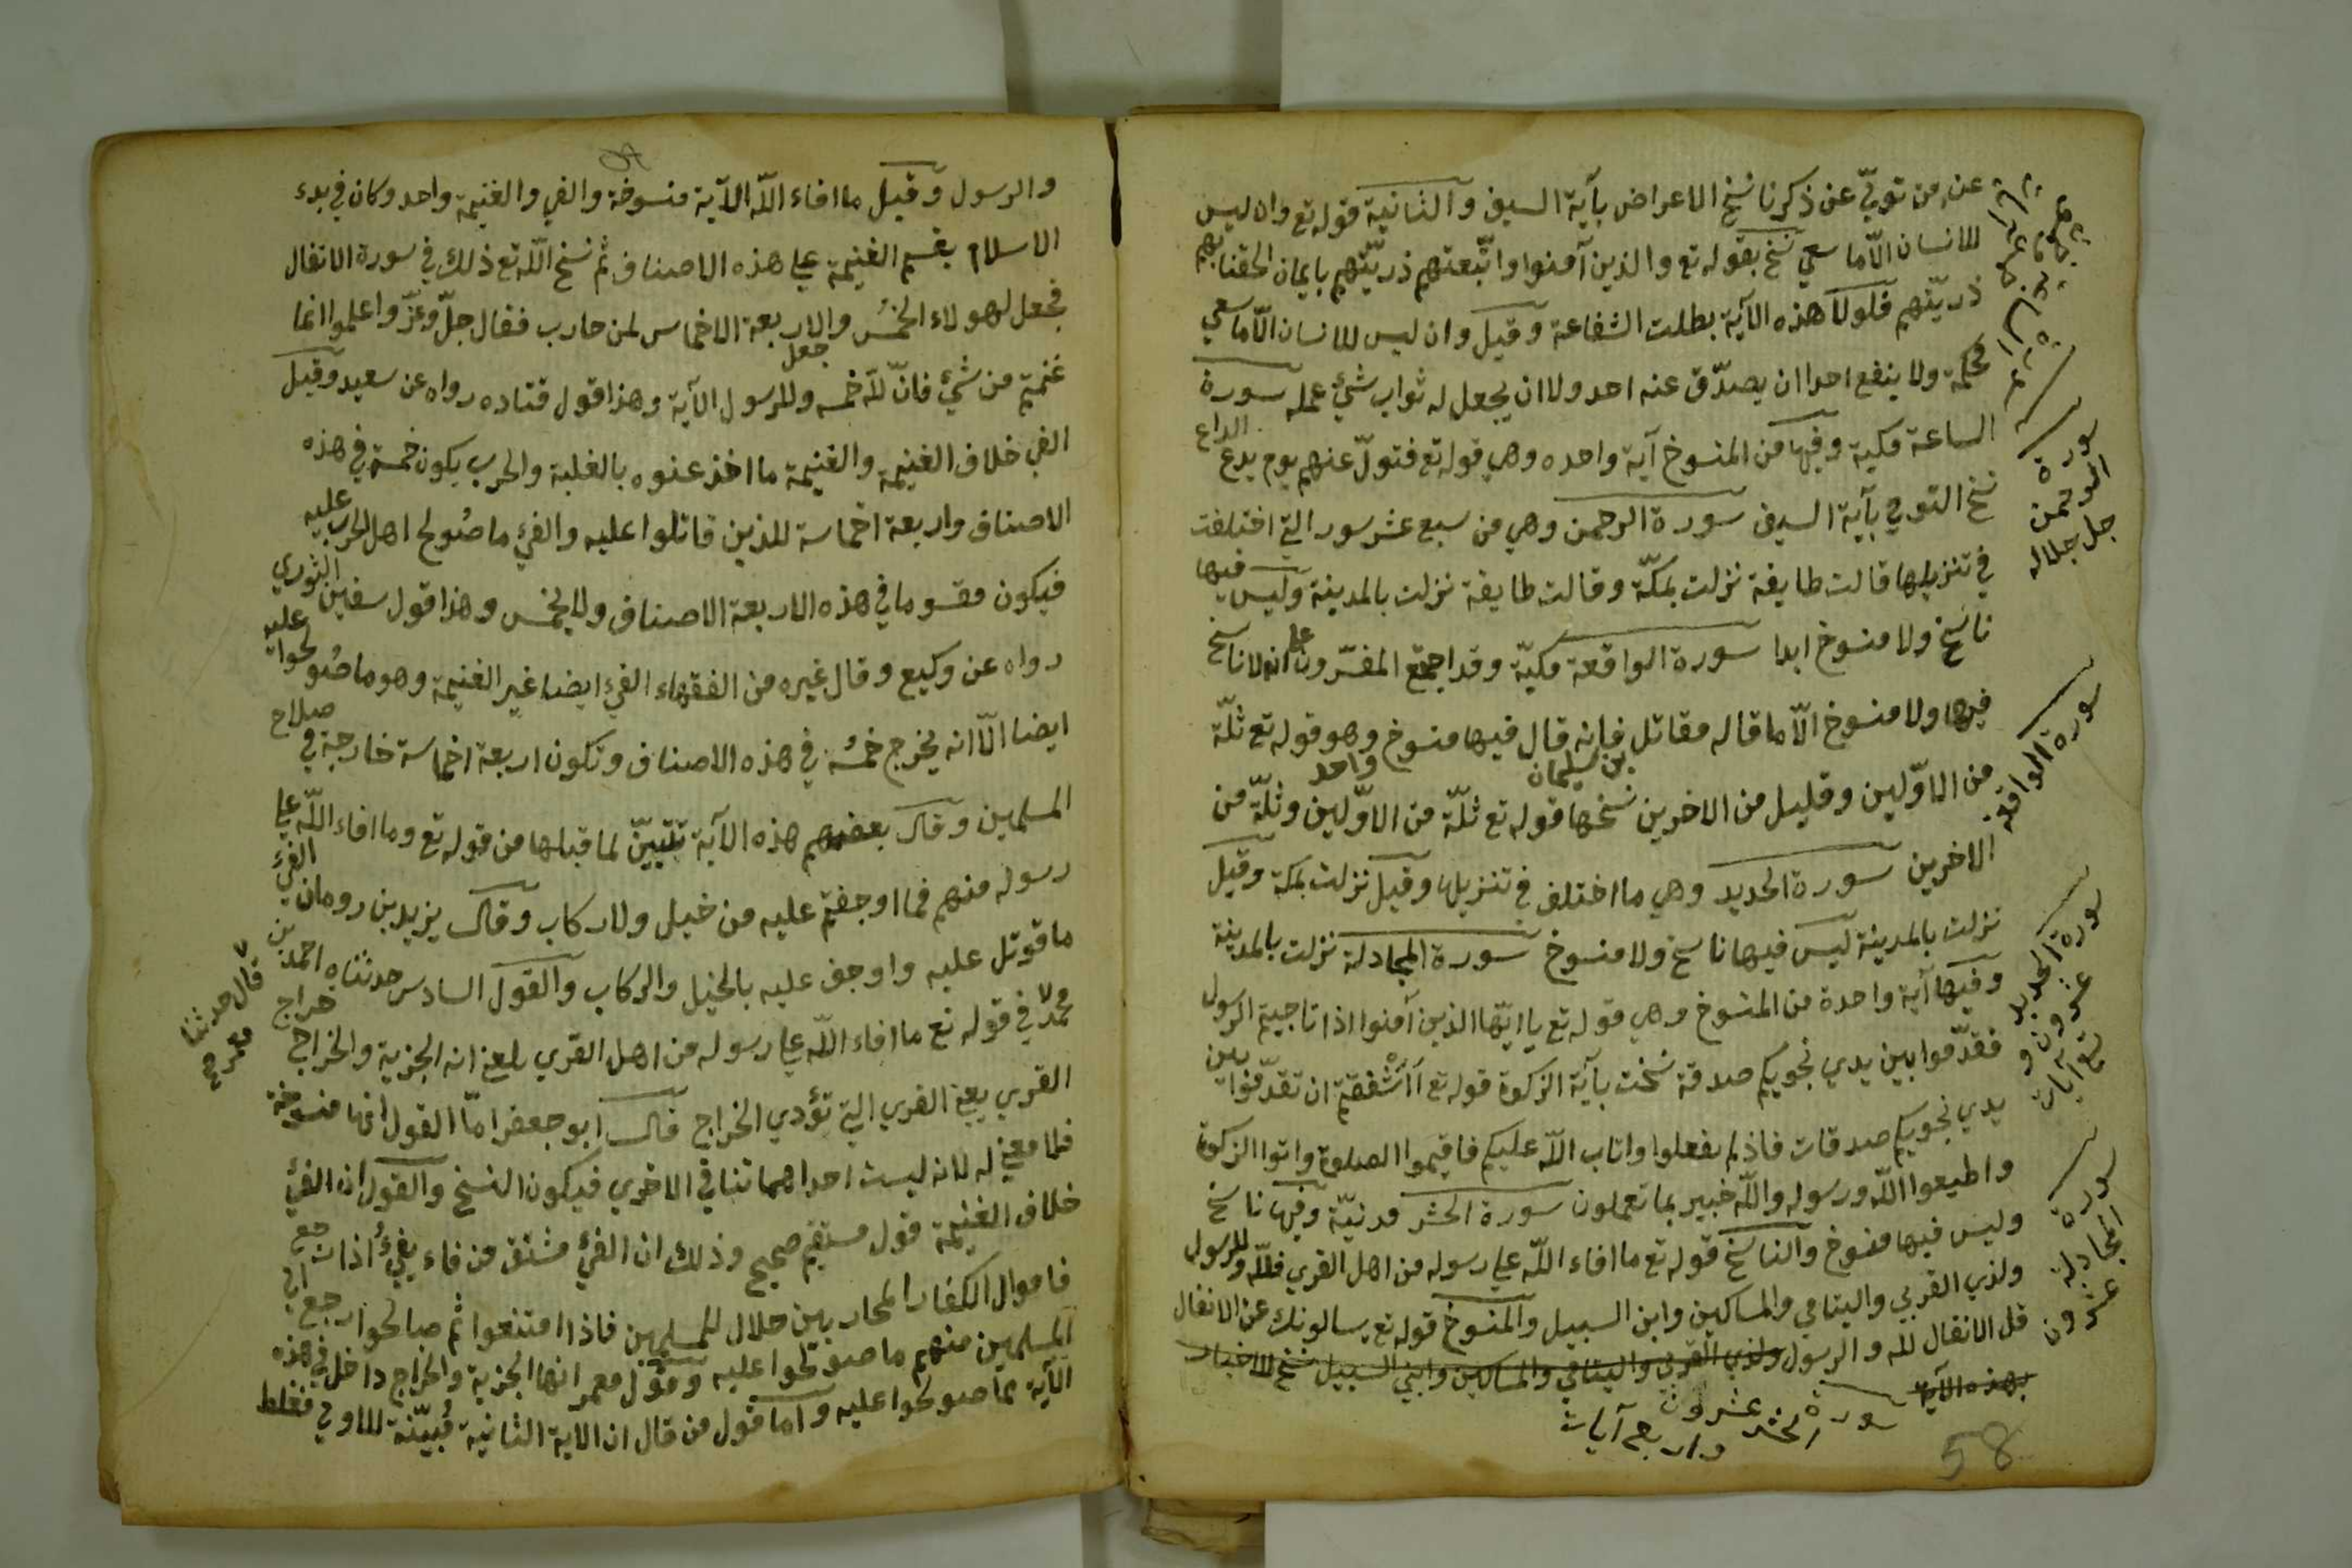 عن من تولّي عن ذكرنا نسخ الاعراض بآية السيف والثانية قوله تع وان ليس
للانسان الّا ما سعي نسخ بقوله تع والذين آمنوا واتّبعتهم ذريّتهم بايمان الحقنا بهم
ذريّتهم فلولا هذه الآية بطلت الشفاعة وقيل وان ليس للانسان الّا ما سعي
محكمة ولا ينفع احدا ان يصدّق عنه احد ولا ان يجعل له ثواب شئ عمله سورة
الساعة مكية وفيها من المنسوخ آية واحده وهي قوله تع فتولّ عنهم يوم يدع الداع
نسخ التولي بآية السيف سورة الرحمن وهي من سبع عشر سور التي اختلفت
في تنزيلها قالت طايفة نزلت بمكّة وقالت طايفة نزلت بالمدينة وليس فيها
ناسخ ولا منسوخ ابدا سورة الواقعة مكيّة وقد اجمع المفسّرون علي انه لا ناسخ
فيها ولا منسوخ الّا ما قاله مقاتل بن سليمان فانه قال فيها منسوخ واحد وهو قوله تع ثلّة
من الاوّلين وقليل من الاخرين نسخها قوله تع ثلّة من الاوّلين وثلّة من
الاخرين سورة الحديد وهي ما اختلف في تنزيلها وقيل نزلت بمكة وقيل
نزلت بالمدينة ليس فيها ناسخ ولا منسوخ سورة المجادلة نزلت بالمدينة
وفيها آية واحدة من المنسوخ وهي قوله تع يا ايّها الذين آمنوا اذا ناجيتم الرسول
فقدّموا بين يدي نجويكم صدقة نسخت بآية الزكوة قوله تع أأشفقتم ان تقدّموا بين
يدي نجويكم صدقات فاذ لم تفعلوا وتاب اللّه عليكم فاقيموا الصلوة واتوا الزكوة
واطيعوا اللّه ورسوله واللّه خبير بما تعملون سورة الحشر مدنيّة وفيها ناسخ
وليس فيها منسوخ والناسخ قوله تع ما افاء اللّه علي رسوله من اهل القري فللّه وللرسول
ولذي القربي واليتامي والمساكين وابن السبيل والمنسوخ قوله تع يسالونك عن الانفال
قل الانفال لله والرسول ولذي القربي واليتامي والمساكين وابن السبيل نسخ للاخبار
بهذه الآية سورة الحشر عشرون
واربع آيات
58
سورة
الرحمن
جل جلاله
سورة الواقعة
سورة الحديد
عشرون و
تسع آيات
سورة
المجادلة
عشرون
والرسول وقيل ما افاء اللّه الآية منسوخة والفي والغنيمة واحد وكان في بدء
الاسلام يقسم الغنيمة علي هذه الاصناف ثم نسخ اللّه تع ذلك في سورة الانفال
فجعل لهولاء الخمس والاربعة الاخماس لمن حارب فقال جلّ وعزّ واعلموا انما
غنمتم من شئ فانّ للّه خمسه وللرسول الآية وهذا قول قتاده رواه عن سعيد وقيل
الفي خلاف الغنيمة والغنيمة ما اخذ عنوه بالغلبة والحرب يكون خمسه في هذه
الاصناف واربعة اخماسة للذين قاتلوا عليه والفئ ما صُولح اهل الحرب عليه
فيكون مقسوما في هذه الاربعة الاصناف ولا يخمس وهذا قول سفين الثوري
رواه عن وكيع وقال غيره من الفقهاء الفئ ايضا غير الغنيمة وهو ما صُولحوا عليه
ايضا الّا انه يخرج خمسُه في هذه الاصناف وتكون اربعة اخماسة خارجة في صلاح
المسلمين وقال بعضهم هذه الآية تبيّن لما قبلها من قوله تع وما افاء اللّه علي
رسوله منهم فما اوجفتم عليه من خيل ولا ركاب وقال يزيد بن رومان الفئ
ما قوتل عليه واوجف عليه بالخيل والركاب والقول السادس حدثناه احمد بن
محمد في قوله تع ما افاء اللّه علي رسوله من اهل القري بلغني انه الجزية والخراج خراج
قال حدثنا
معمر صح
القري يعني القري التي تؤدي الخراج قال ابو جعفر امّا القول انها منسوخة
فلا معني له لانه ليست احداهما تنافي الاخري فيكون النسخ والقول ان الفئ
خلاف الغنيمة قول مستقيم صحيح وذلك ان الفئ مشتق من فاء يفئُ اذا رجع
فاموال الكفار المحاربين حلال للمسلمين فاذا امتنعوا ثم صالحوا رجع الي
المسلمين منهم ما صولحوا عليه وقول معمر انها الجزية والخراج داخل في هذه
الآية مما صولحوا عليه واما قول من قال ان الاية الثانية مُبيّنة للاولي فغلط